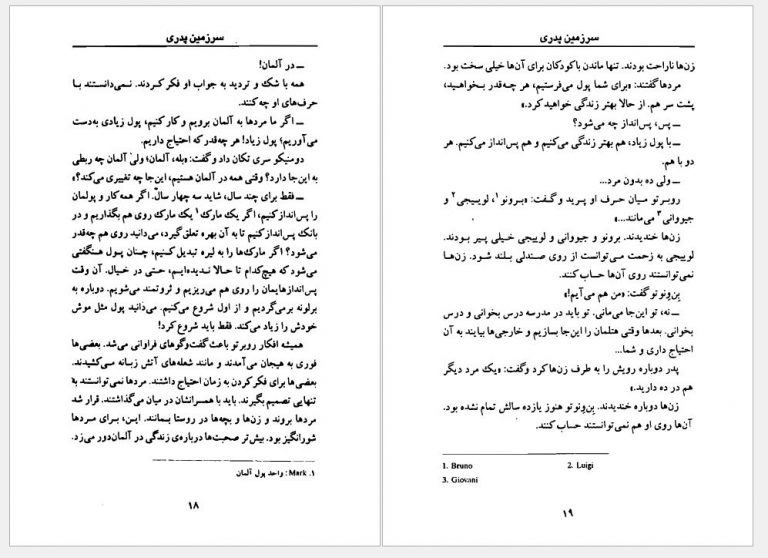 سرزمین پدری
ـــ در آلمان!
همه با شك و تردید به جواب او فکر کردند. نمی‌دانستند بـا
حرف‌های او چه کنند.
ـــ اگر ما مردها به آلمان برویم و کار کنیم، پول زیادی به‌دست
می‌آوریم؛ پول زیاد! هر چه‌قدر که احتیاج داریم.
دومنیکو سری تکان داد و گفت: «بله، آلمان؛ ولی آلمان چه ربطی
به این‌جا دارد؟ وقتی همه در آلمان هستیم، این‌جا چه تغییری می‌کند؟»
ـــ فقط برای چند سال، شاید سه چهار سال. اگر همه کار و پولمان
را پس‌انداز کنیم، اگر یك مارك ۱ یك مارك روی هم بگذاریم و در
بانك پس‌انداز کنیم تا به آن بهره تعلق گیرد، می‌دانید روی هم چه‌قدر
می‌شود؟ اگر مارك‌ها را به لیره تبدیل کنیم، چنان پول هنگفتی
می‌شود که هیچ‌کدام تا حالا ندیده‌ایم، حتی در خیال. آن وقت
پس‌اندازهایمان را روی هم می‌ریزیم و ثروتمند می‌شویم. دوباره به
برلونه برمی‌گردیم و از اول شروع می‌کنیم. می‌دانید پول مثل موش
خودش را زیاد می‌کند. فقط باید شروع کرد!
همیشه افکار روبرتو باعث گفت‌وگوهای فراوانی می‌شد. بعضی‌ها
فوری به هیجان می‌آمدند و مانند شعله‌های آتش زبانه می‌کشیدند.
بعضی‌ها برای فکر کردن به زمان احتیاج داشتند. مردها نمی‌توانستند به
تنهایی تصمیم بگیرند. باید با همسرانشان در میان می‌گذاشتند. قرار شد
مردها بروند و زن‌ها و بچه‌ها در روستا بمانند. این، برای مردها
شورانگیز بود. بیش‌تر صحبت‌ها درباره‌ی زندگی در آلمان‌دور می‌زد.
۱. Mark : واحد پول آلمان
۱۸
سرزمین پدری
زن‌ها ناراحت بودند. تنها ماندن با کودکان برای آن‌ها خیلی سخت بود.
مردها گفتند: «برای شما پول می‌فرستیم، هر چه‌قدر بخواهید،
پشت سر هم. از حالا بهتر زندگی خواهید کرد.»
ـــ پس، پس‌انداز چه می‌شود؟
ـــ با پول زیاد، هم بهتر زندگی می‌کنیم و هم پس‌انداز می‌کنیم. هر
دو با هم.
ـــ ولی ده بدون مرد...
روبرتو میان حرف او پرید و گفت: «برونو ۱، لوییجی ۲ و
جیوانی ۳ می‌مانند...»
زن‌ها خندیدند. برونو و جیوانی و لوییجی خیلی پیر بودند.
لوییجی به زحمت می‌توانست از روی صندلی بلند شود. زن‌ها
نمی‌توانستند روی آن‌ها حساب کنند.
بِن‌وِنوتو گفت: «من هم می‌آیم!»
ـــ نه، تو این‌جا می‌مانی. تو باید در مدرسه درس بخوانی و درس
بخوانی. بعدها وقتی هتلمان را این‌جا بسازیم و خارجی‌ها بیایند به آن
احتیاج داری و شما...
پدر دوباره رویش را به طرف زن‌ها کرد و گفت: «یك مرد دیگر
هم در ده دارید.»
زن‌ها دوباره خندیدند. بِن‌وِنوتو هنوز یازده سالش تمام نشده بود.
آن‌ها روی او هم نمی‌توانستند حساب کنند.
1. Bruno 2. Luigi
3. Giovani
۱۹